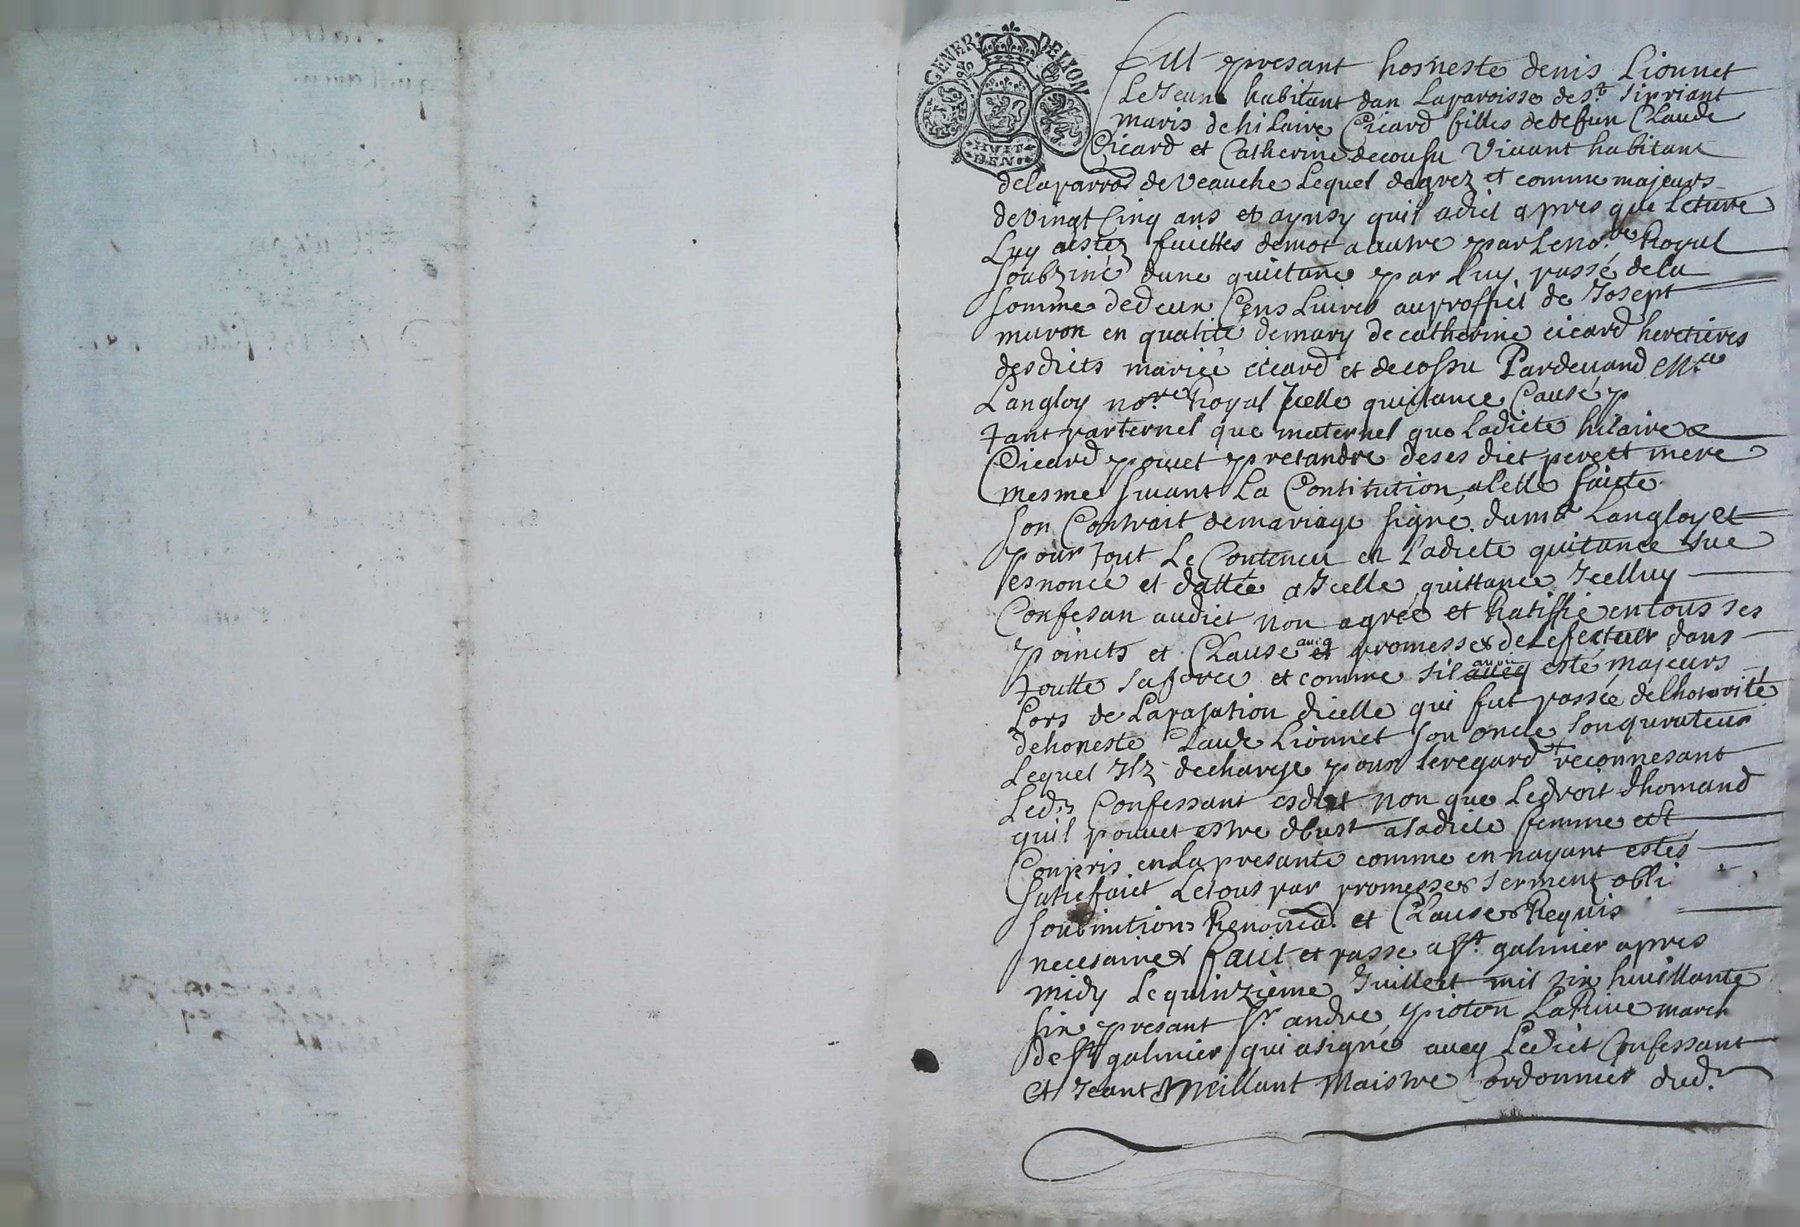 GENER DE LYON
HUIT
DEN
Fut presant honneste denis Lionnet
Le Jeune habitant dan Laparoisse de St Sipriant
maris de hilaire Cicard filles de defun Claude
Cicard et Catherine decousu Vivant habitant
delaparrod de Veauche Lequel degrez et comme majeurs
devingt sinq ans et aynsy quil adict apres que Leture
Luy aestez faicttes demot aautre par Leno.re Royal
soubziné dune quitance par Luy passé dela
somme dedeux Cens Livres auproffict de Josept
muron en qualité demary de catherine cicard heretieres
desdicts mariée cicard et decossu Pardevand Me
Langloy no.re Royal Jcelle quitance Causé p
tant parternel que maternel que Ladicte hilaire
Cicard pouvet pretandre deses dict pere et mere
mesme suivant La Contitution aLelle faicte
son Contrait demariage signé dumt Langloy et
pour tout Le Conteneu en Ladicte quitance sue
esnoncé et dattée a Jcelle quittance Jcelluy
Confesan audict non agreé et Ratiffié entous ses
poincts et Clause avecq et promesses deLefectuer dans
toutte saforce et comme sil avoit avecq esté majeurs
Lors de Lapasation dicelle qui fut passée delhotorité
dehoneste Claude Lionnet son oncle son qurateur
Lequel Jlz decharge pour leregard reconnesant
Led. Confessant esdict non que Ledroit dhomand
quil pouvet estre dbust aladicte femme est
Conpris enLapresante comme en nayant estés
satiefaict Letous par promesses serment obli
soubmitions Renoncia. et Clauses Requis
necesaires faict et passe a St. galmier apres
midy Le quinzieme Juillet mil six huittante
six presant Sr andre pioton LaRive march
de St galmier qui asigné avecq Ledict Confessant
et Jeant Meillant Maistre Cordonnier dud.